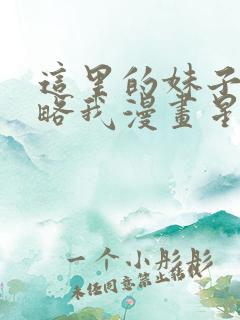 這里的妹子
略我漫畫星
一个小彤彤
未经同意禁止转载